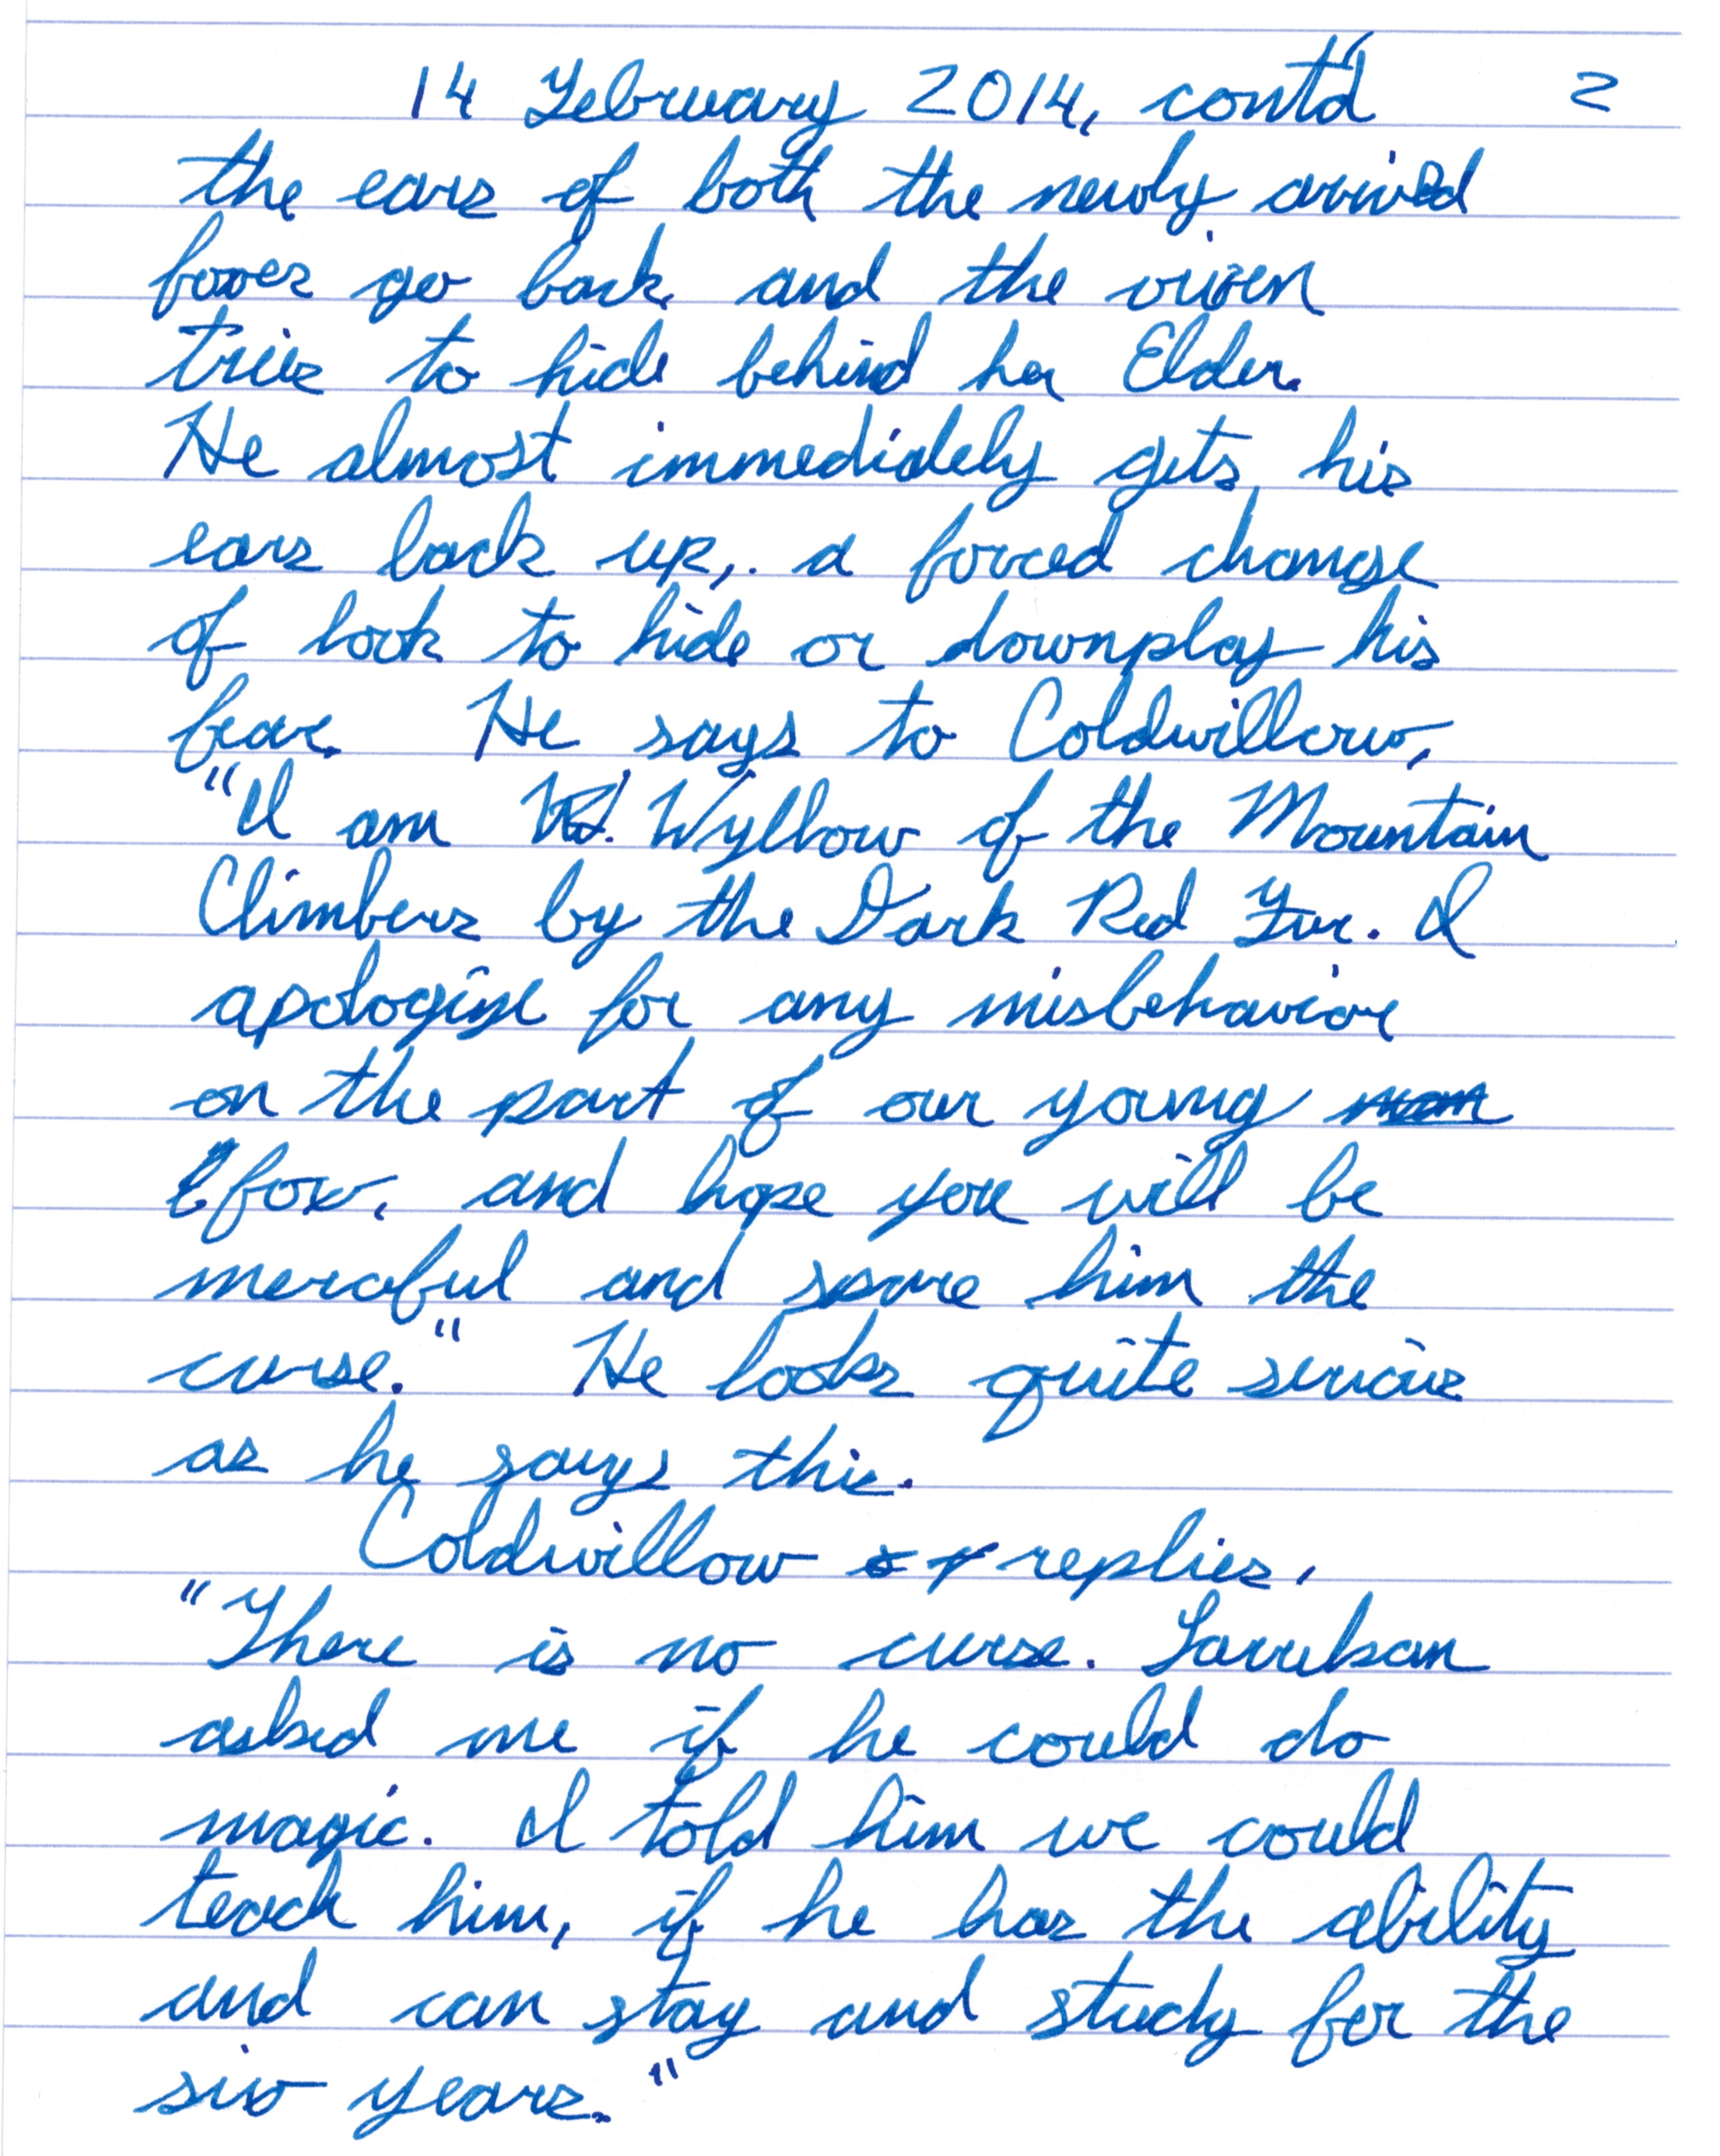 14 February 2014, cont'd 2
the ears of both the newly arived
foxes go back and the vixen
tries to hide behind her Elder.
He almost immedidely gets his
ears back up, a forced change
of look to hide or downplay his
fear. He says to Coldwillow,
"I am Wyllow of the Mountain
Climbers by the Dark Red Fur. I
apologize for any misbehavior
on the part of our young man
fox, and hope you will be
merciful and spare him the
curse." He looks quite serious
as he says this.
Coldwillow replies,
"There is no curse. Larrekan
asked me if he could do
magic. I told him we could
teach him, if he has the ability
and can stay and study for the
six years."